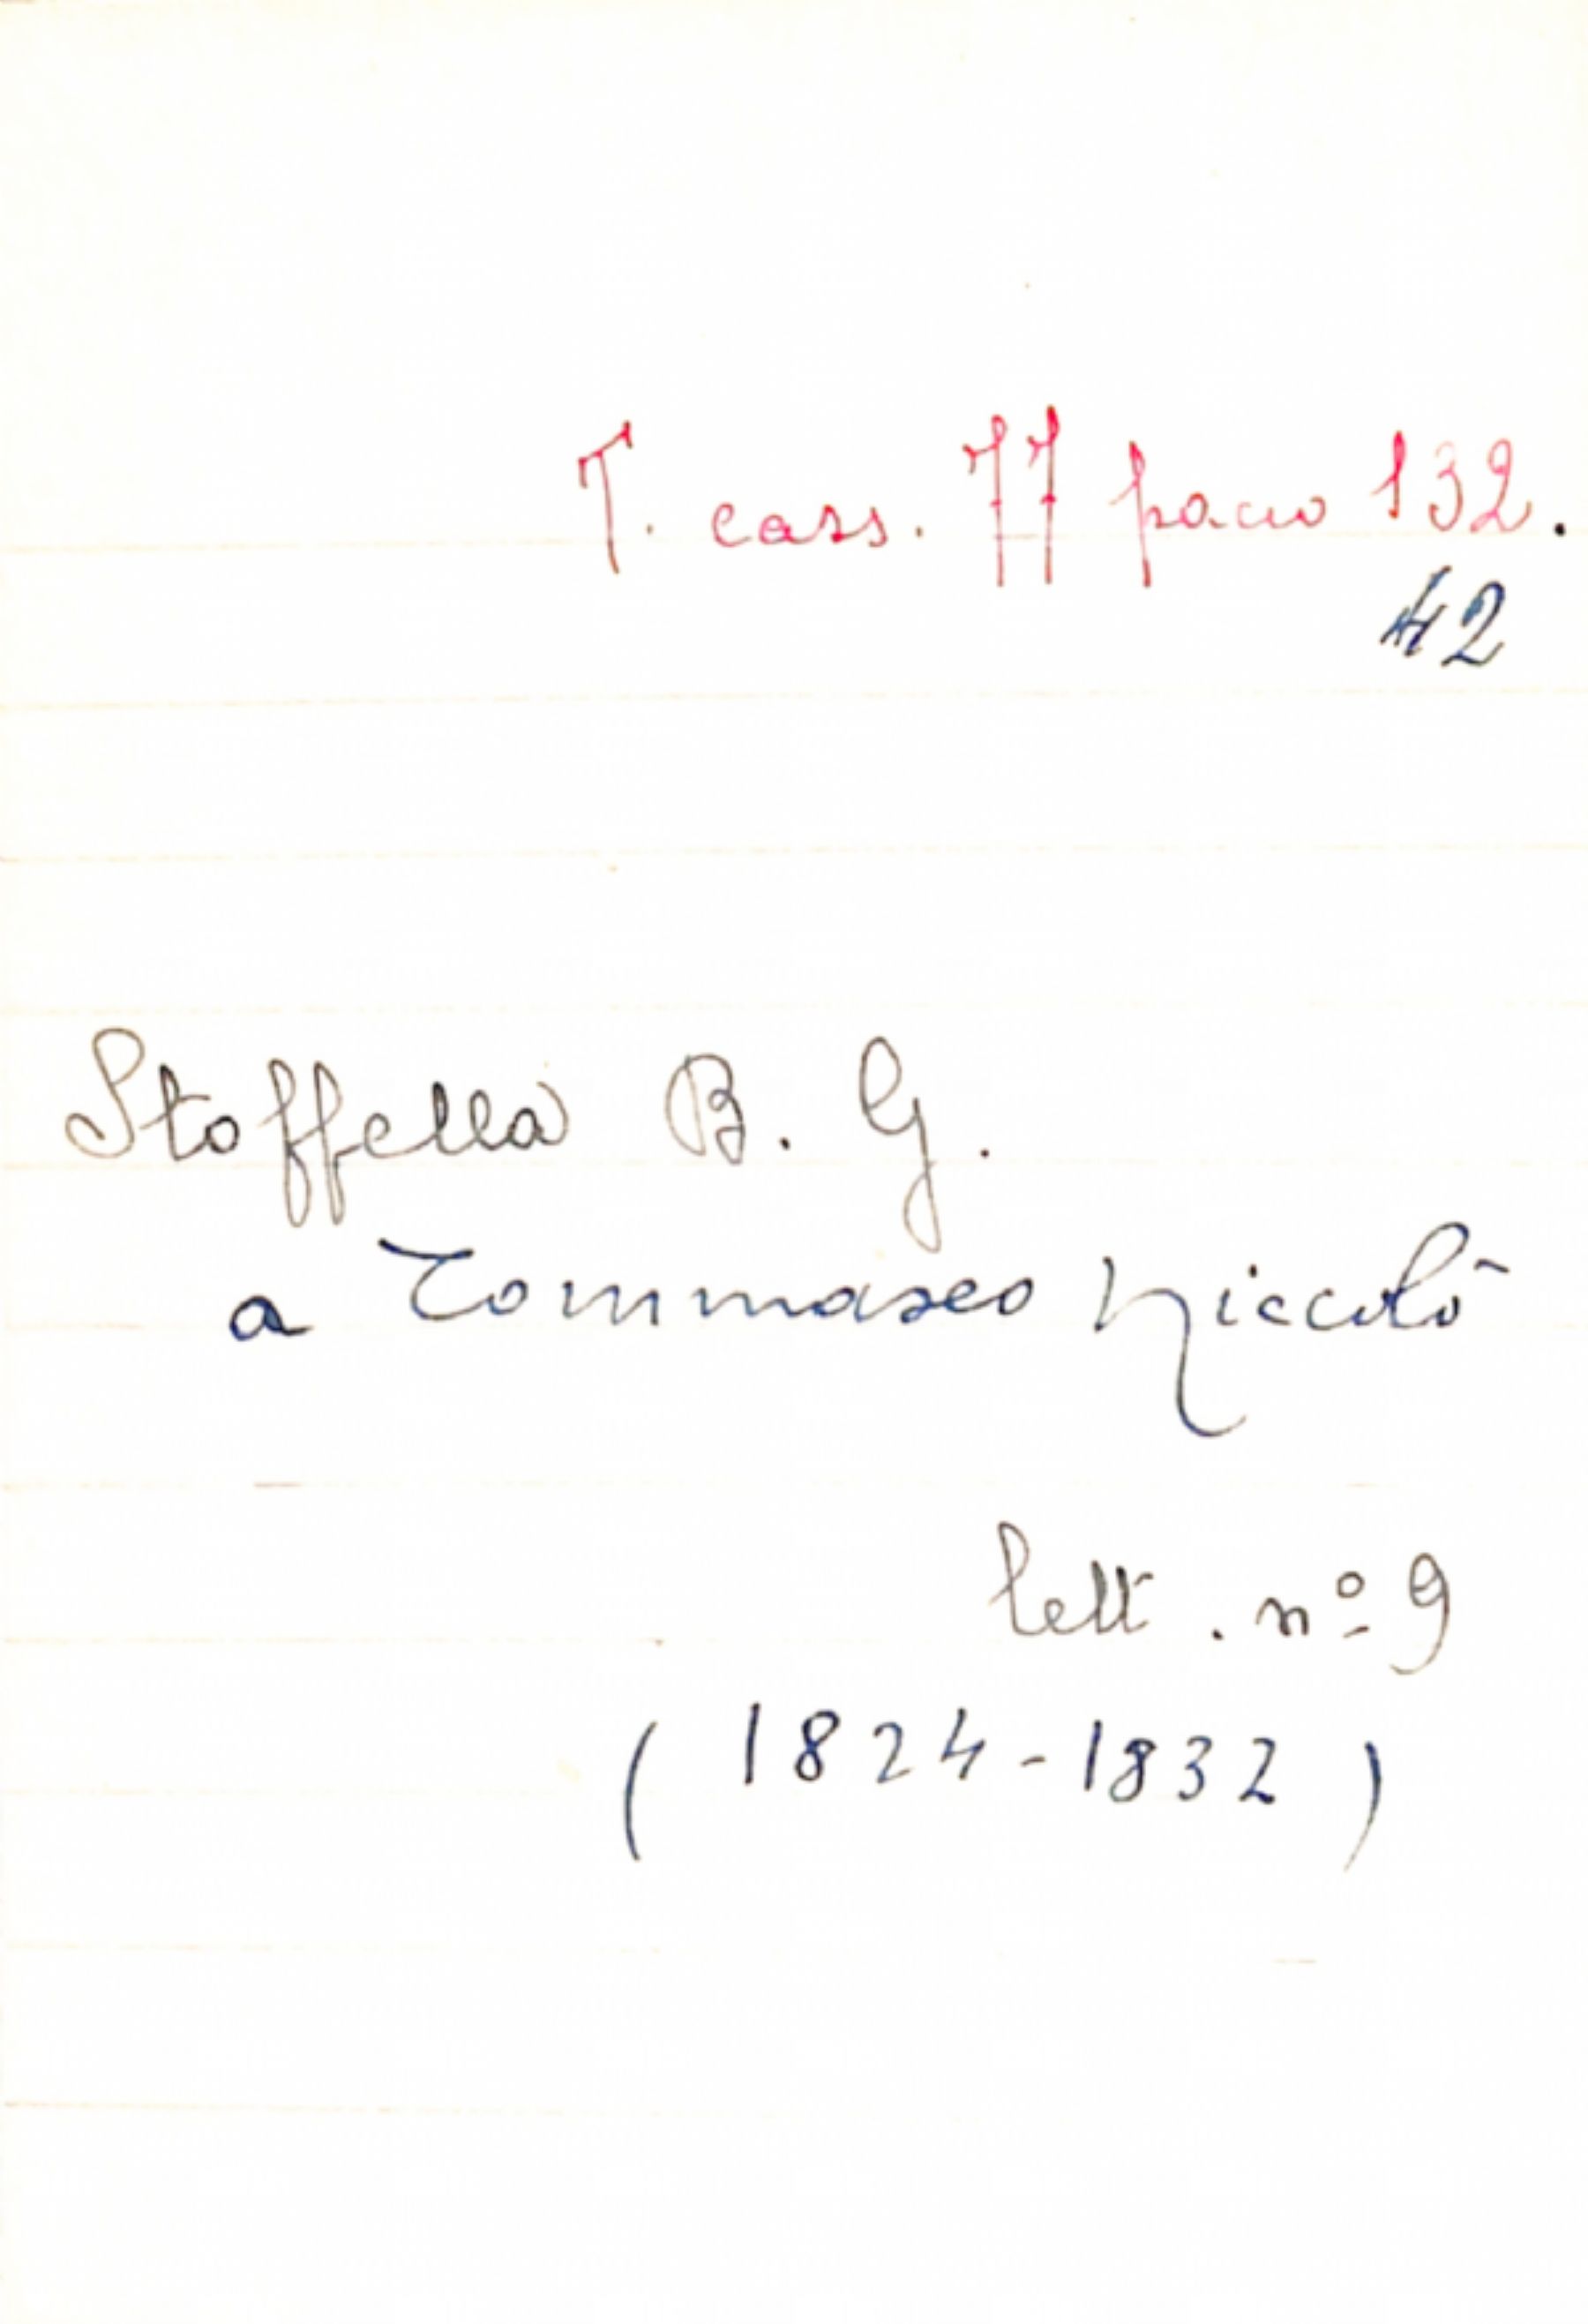 T. cass. 77 pacco 132.
42
Stoffella B. G.
a Tommaseo Niccolò
lett. nº 9
(1824-1832)